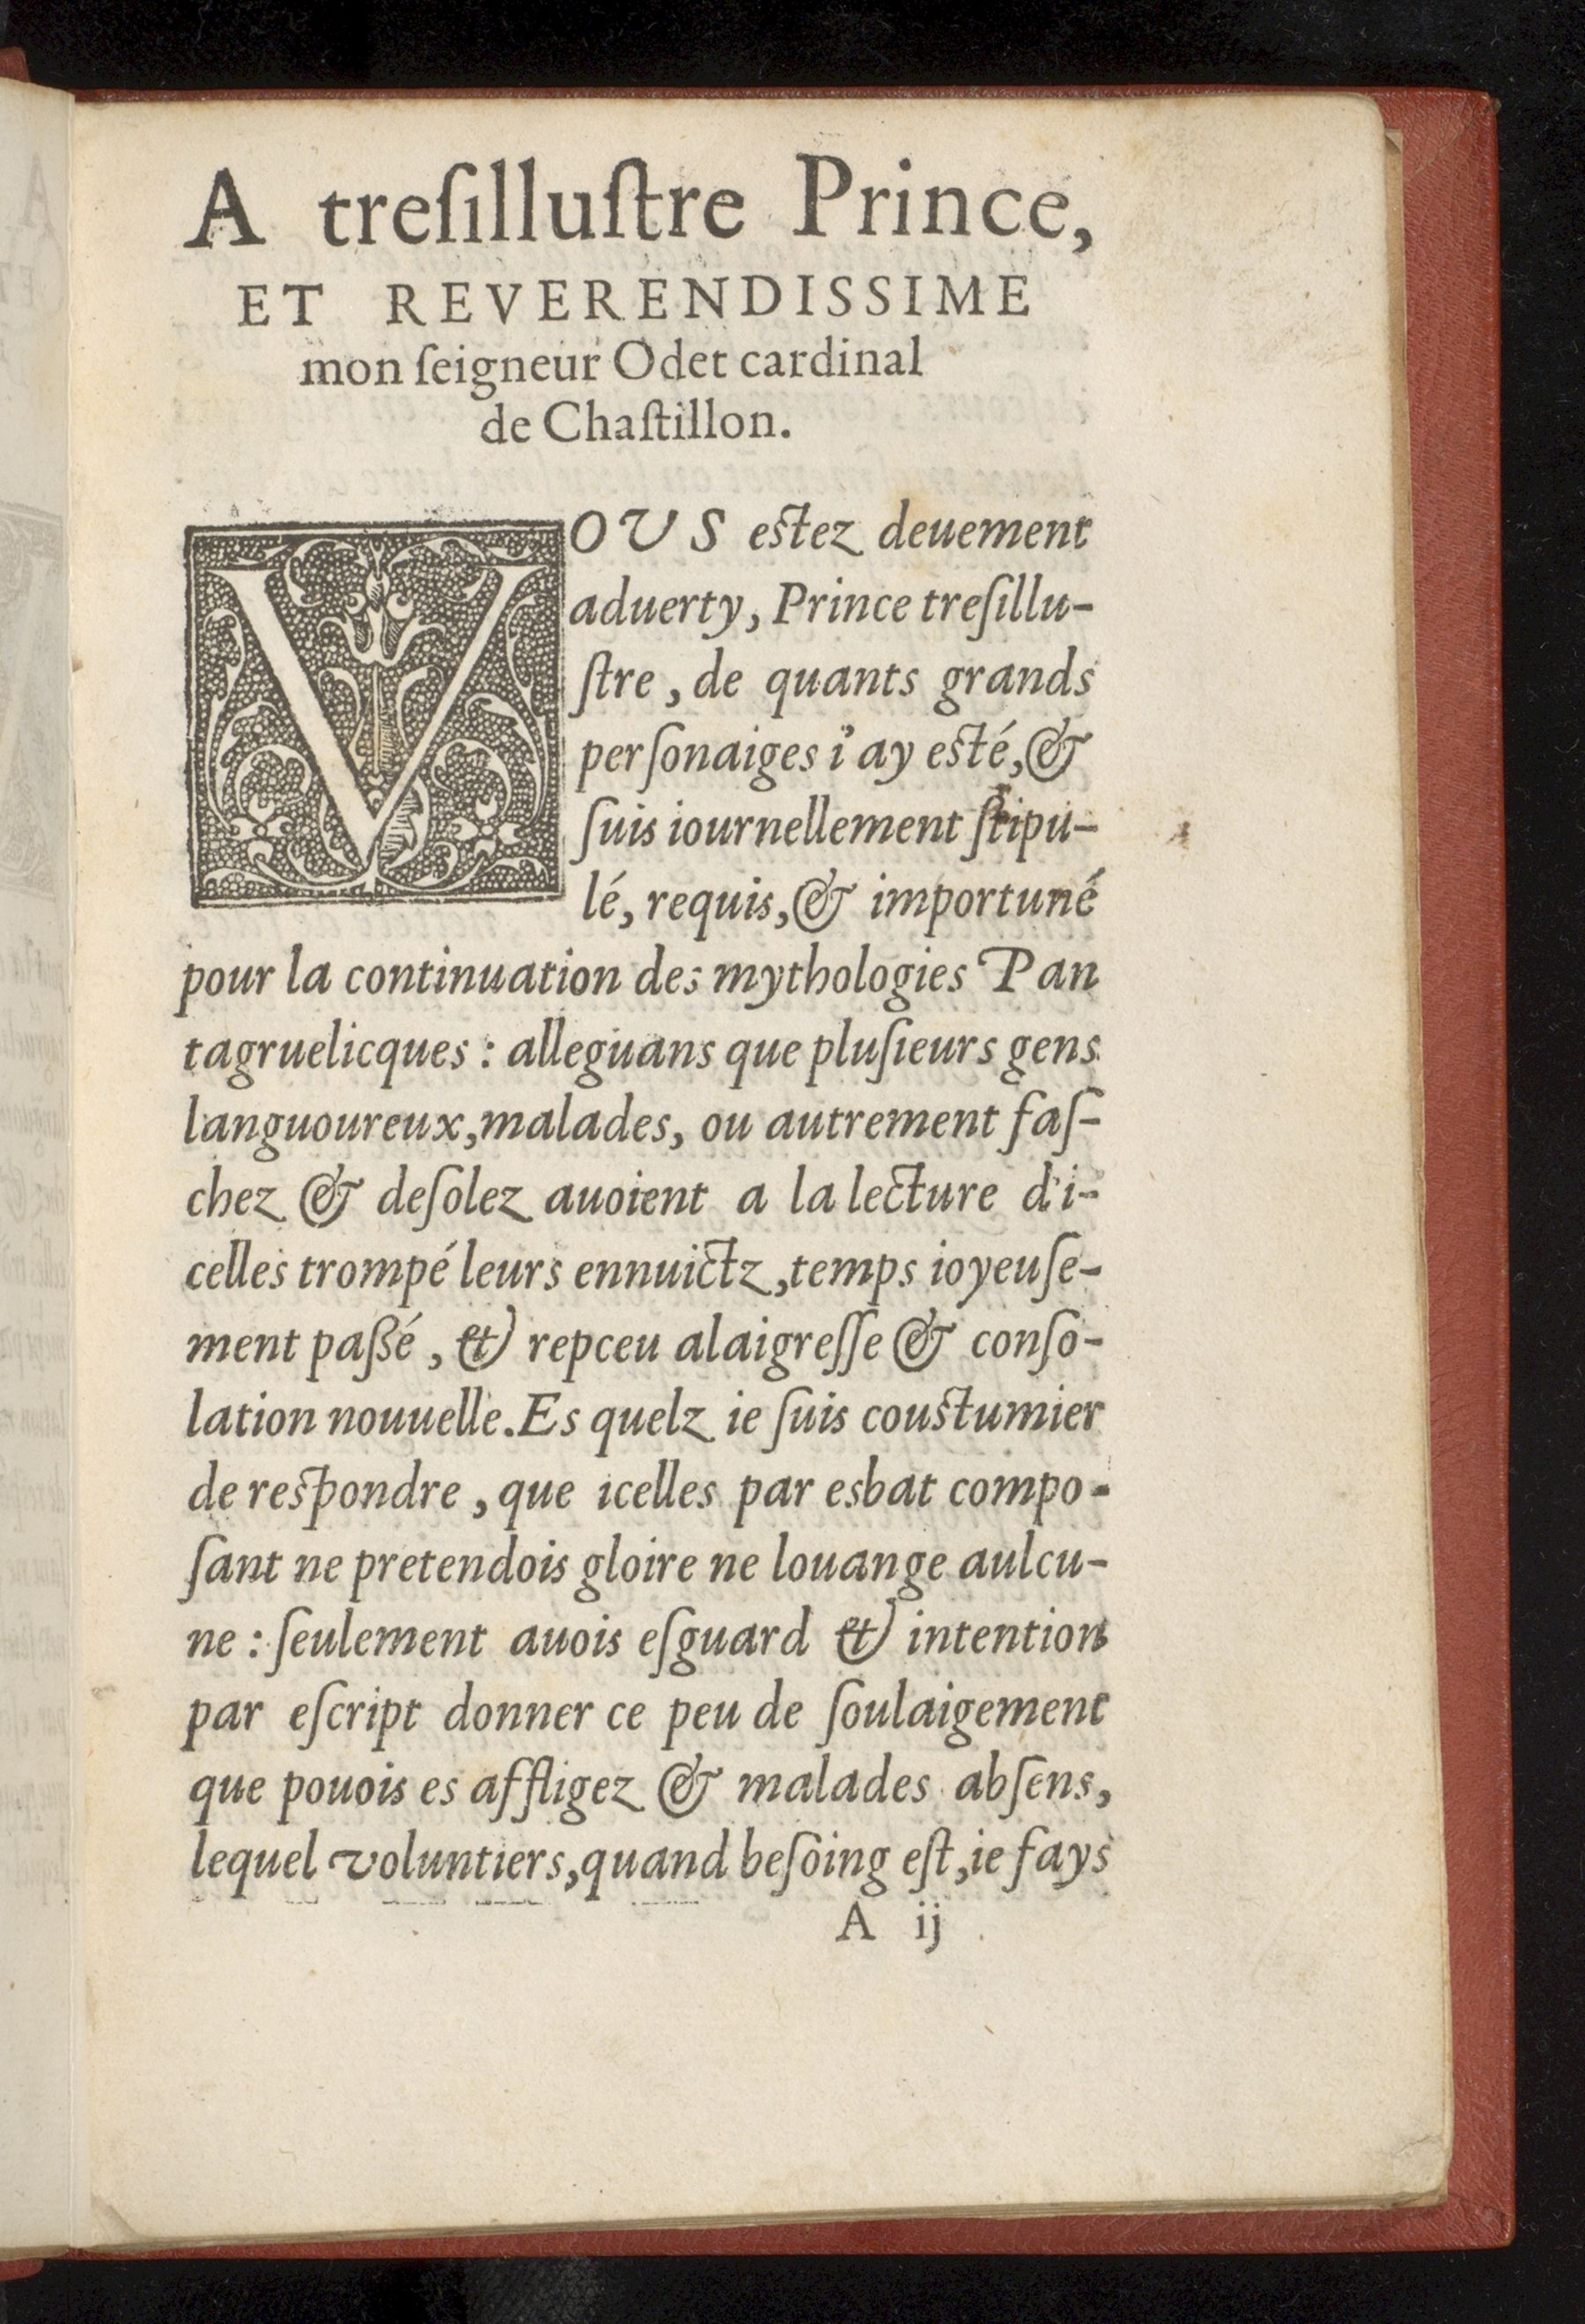 A treſilluſtre Prince,
ET REVERENDISSIME
mon ſeigneur Odet cardinal
de Chaſtillon.
VOVS eſtez deuement
aduerty, Prince treſillu-
ſtre, de quants grands
perſonaiges i'ay eſté, &
ſuis iournellement ſtipu-
lé, requis, & importuné
pour la continuation des mythologies Pan
tagruelicques : alleguans que pluſieurs gens
languoureux, malades, ou autrement faſ-
chez & deſolez auoient a la lecture d'i-
celles trompé leurs ennuictz, temps ioyeuſe-
ment paßé, & repceu alaigreſſe & conſo-
lation nouuelle. Es quelz ie ſuis couſtumier
de reſpondre, que icelles par esbat compo-
ſant ne pretendois gloire ne louange aulcu-
ne : ſeulement auois eſguard & intention
par eſcript donner ce peu de ſoulaigement
que pouois es affligez & malades abſens,
lequel voluntiers, quand beſoing eſt, ie fays
A ij